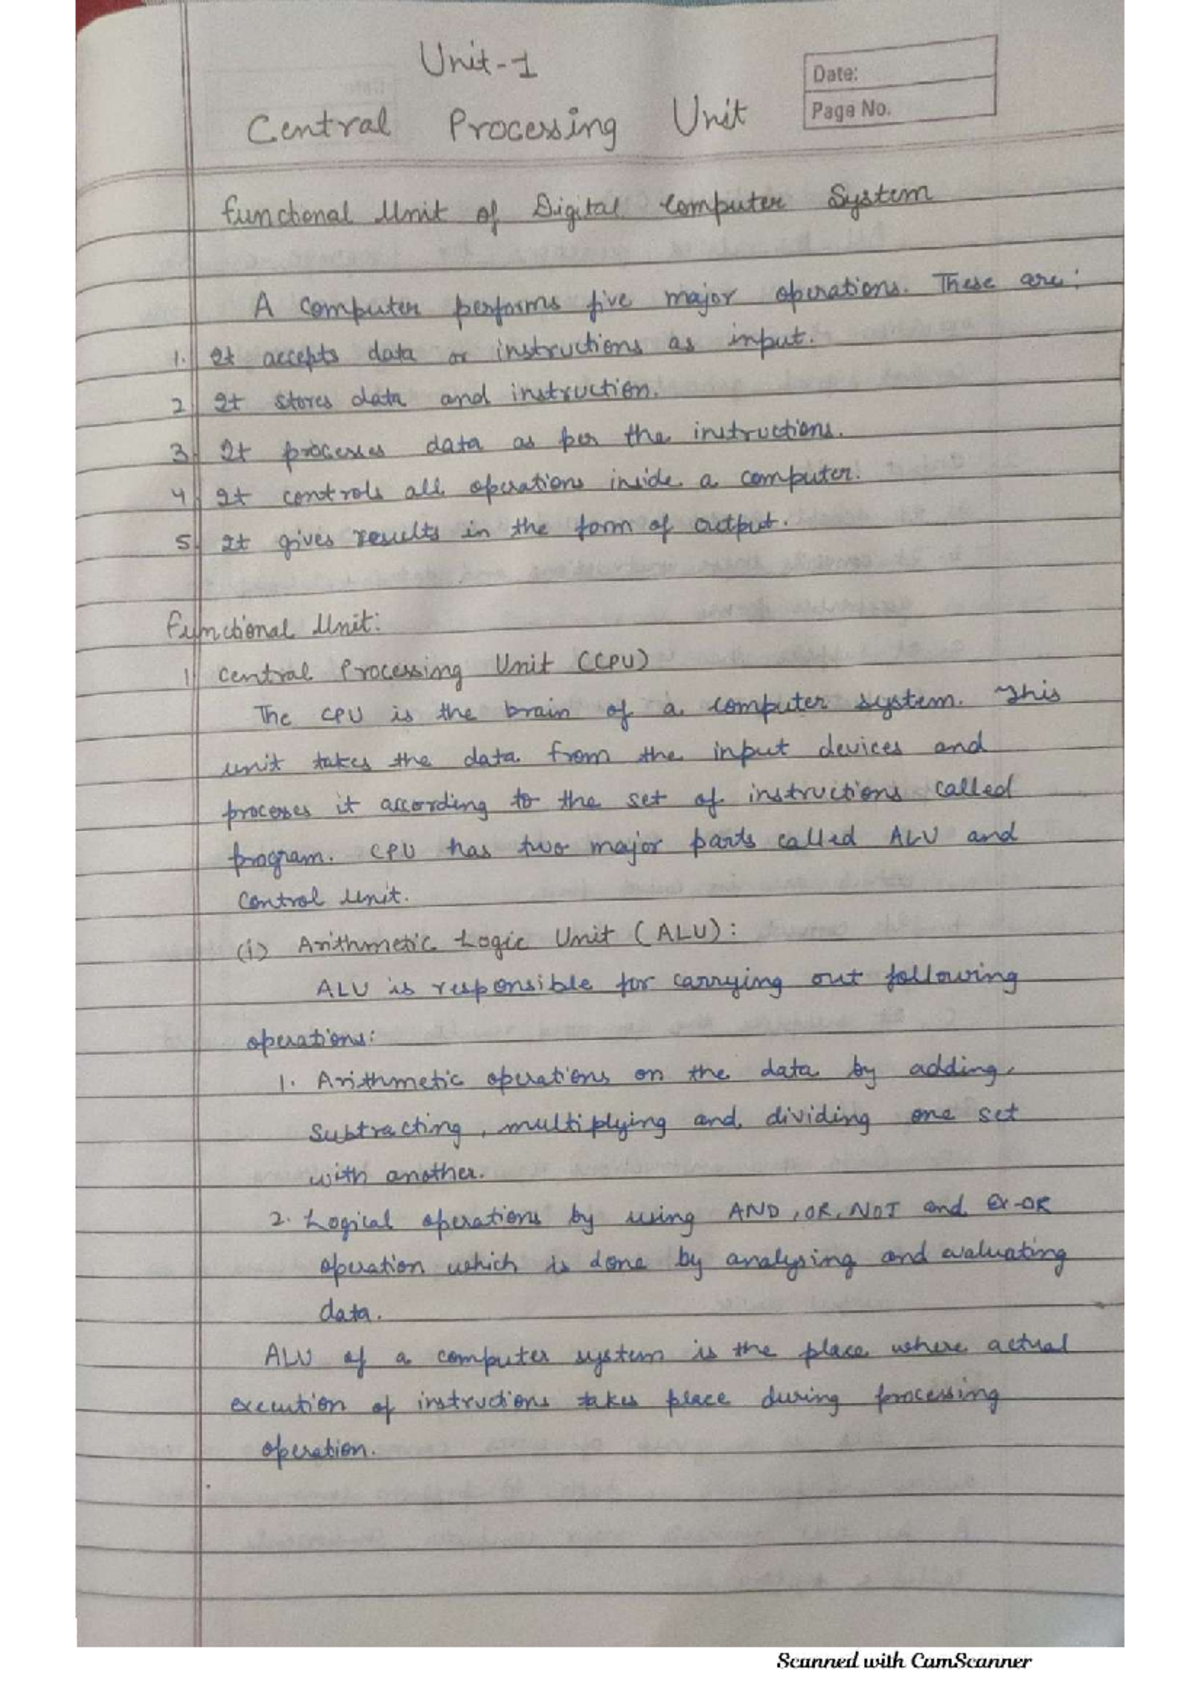 Unit-1
Date:
Central Processing Unit
Page No.
Functional Unit of Digital Computer System
A computer performs five major operations. These are:
1. It accepts data or instructions as input.
2 It stores data and instruction.
3 It processes data as per the instructions.
4 It controls all operations inside a computer.
5 It gives results in the form of output.
Functional Unit:
1 Central Processing Unit (CPU)
The CPU is the brain of a computer system. This
unit takes the data from the input devices and
processes it according to the set of instructions called
program. CPU has two major parts called ALU and
Control Unit.
(i) Arithmetic Logic Unit (ALU):
ALU is responsible for carrying out following
operations:
1. Arithmetic operations on the data by adding,
Subtracting, multiplying and dividing one set
with another.
2. Logical operations by using AND, OR, NOT and Ex-OR
operation which is done by analysing and evaluating
data.
ALU of a computer system is the place where actual
execution of instructions takes place during processing
operation.
Scanned with CamScanner